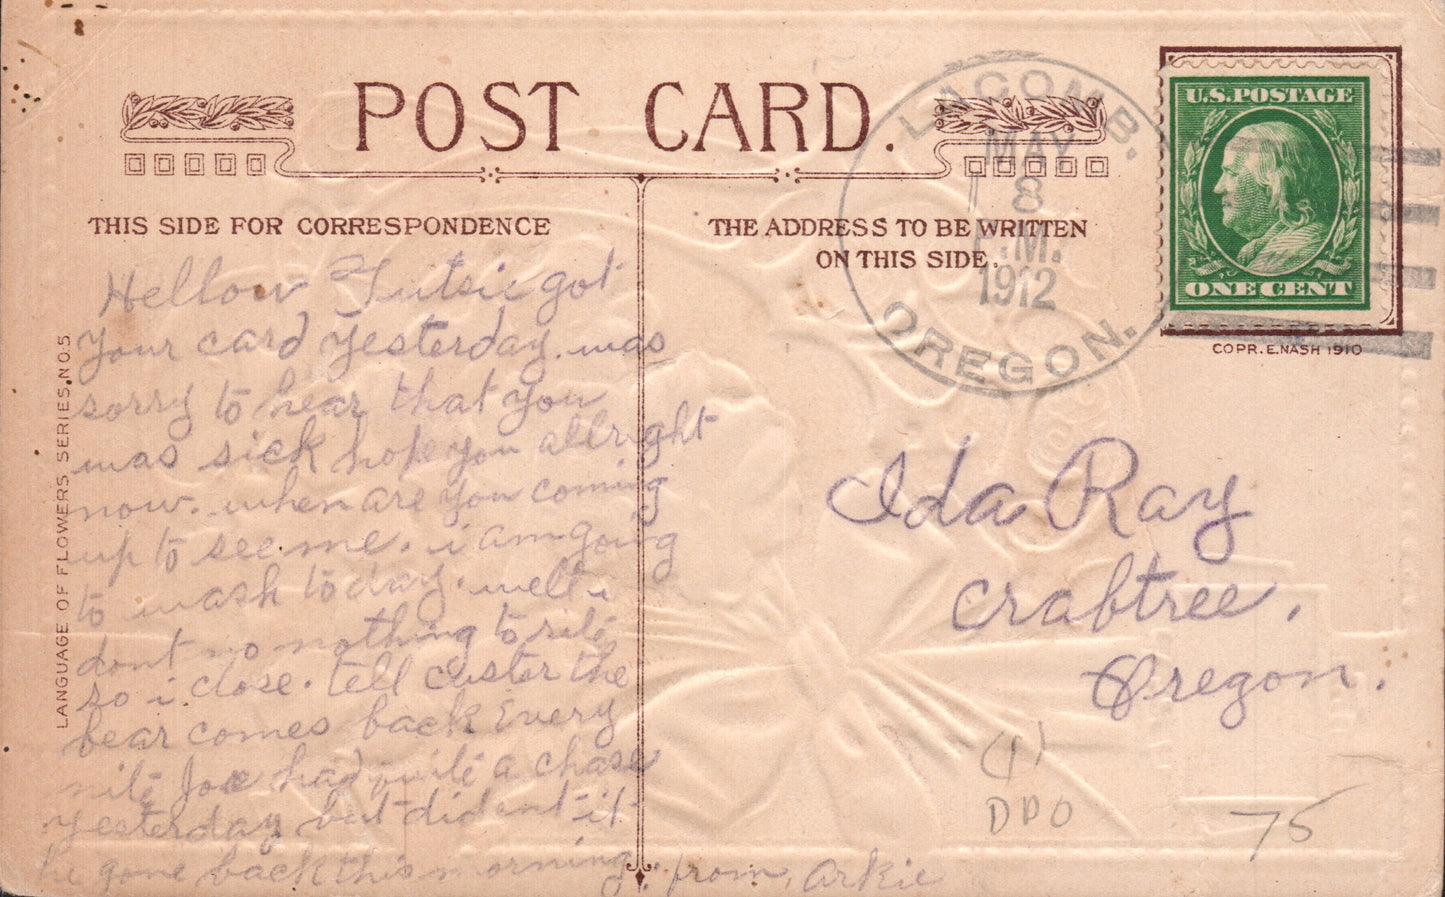 POST CARD.
THIS SIDE FOR CORRESPONDENCE
THE ADDRESS TO BE WRITTEN
ON THIS SIDE.
LACOMB.
MAY
8
P.M.
1912
OREGON.
U.S. POSTAGE
ONE CENT
COPR. E. NASH 1910
LANGUAGE OF FLOWERS SERIES, NO. 5
Hellow Tutsie got
your card yesterday. was
sorry to hear that you
was sick hope you allright
now. when are you coming
up to see me. i am going
to wash today. well i
dont no nothing to rite
so i close. tell Custer the
bear comes back Every
nite Joe had quite a chase
yesterday but did ent it
he gone back this morning. from, Arkie
Ida Ray
Crabtree.
Oregon.
DPO
75